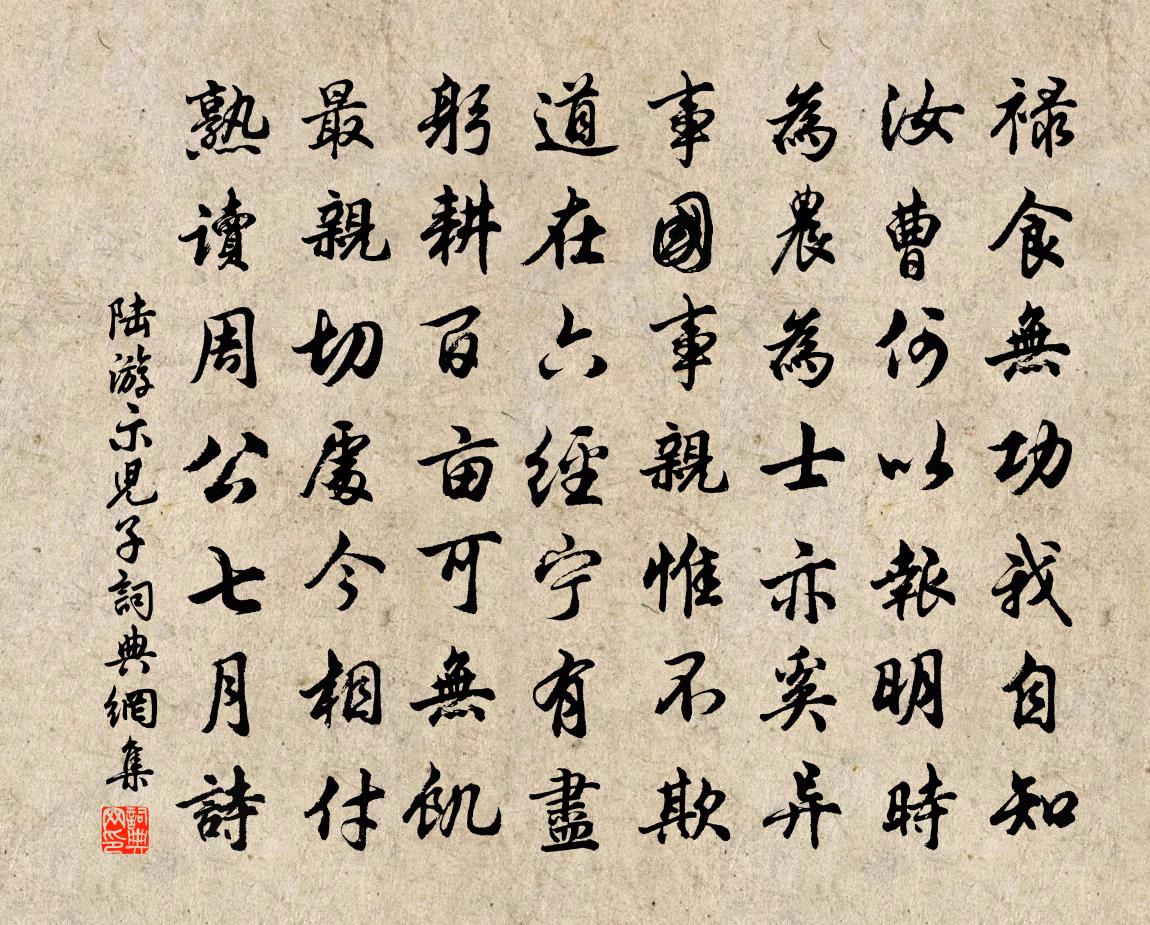 禄食無功我自知
汝曹何以報明時
為農為士亦奚异
事國事親惟不欺
道在六經宁有盡
躬耕百亩可無飢
最親切處今相付
熟讀周公七月詩
陆游示児子詞典網集
詞典网印